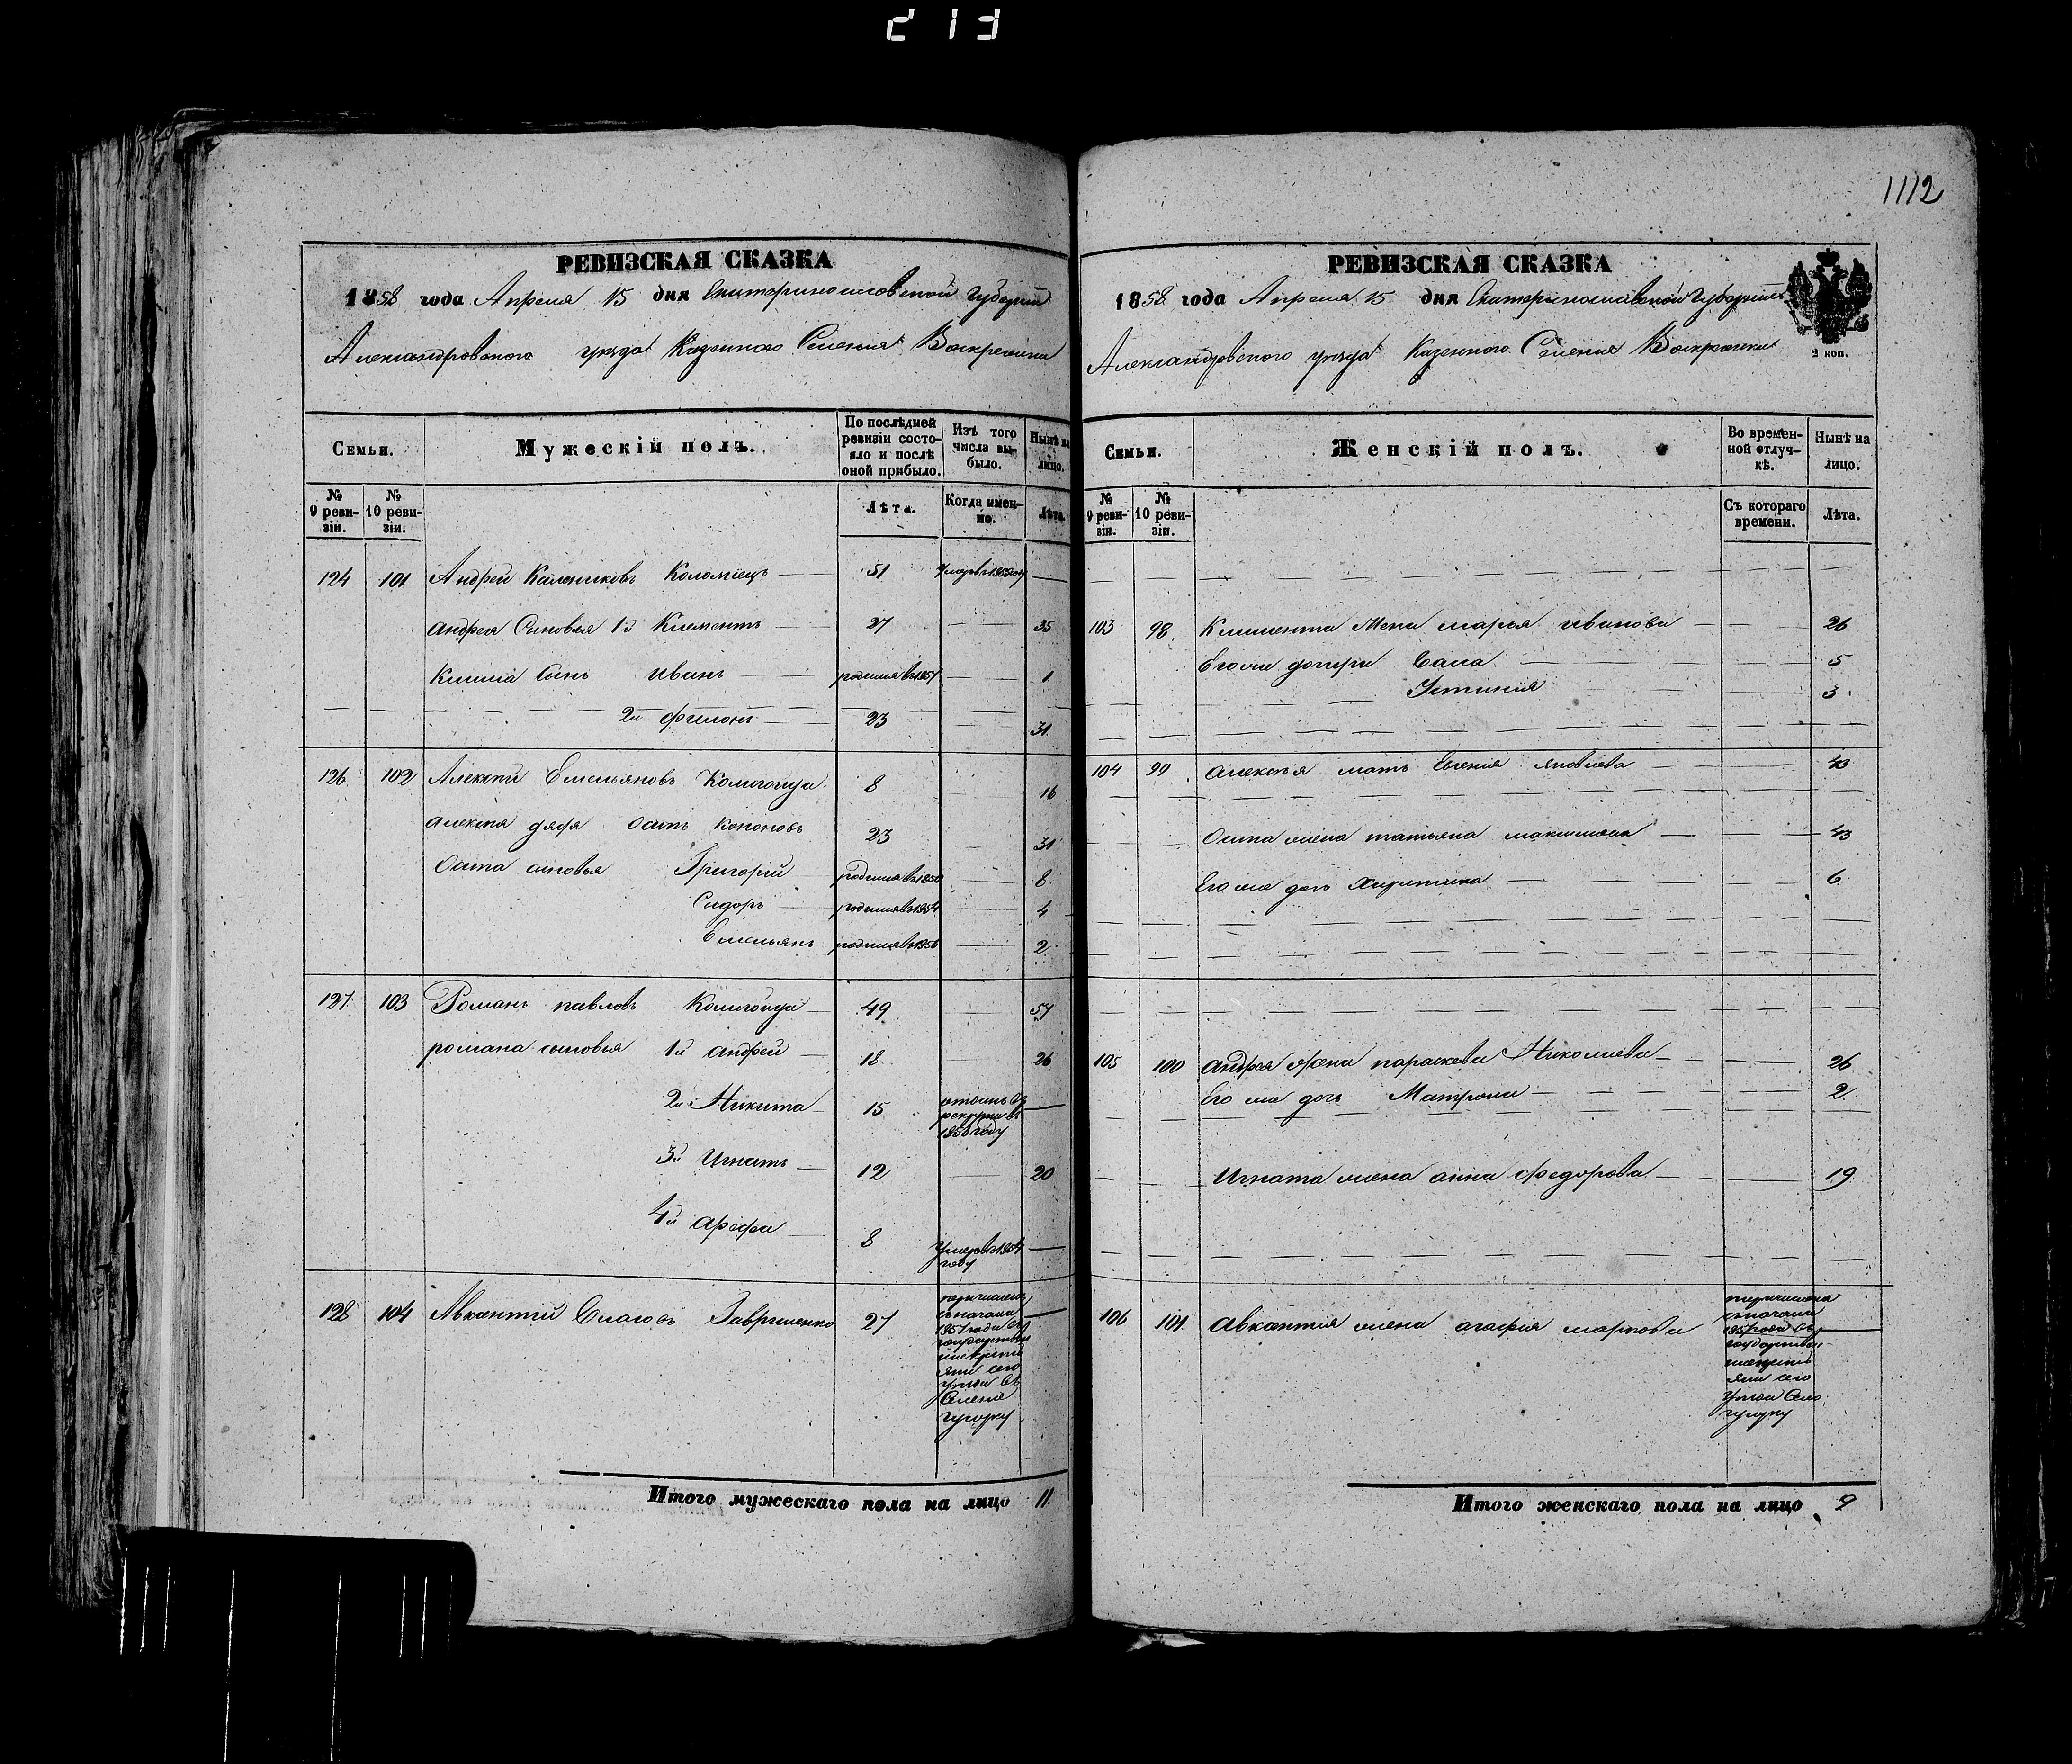 213
1112
РЕВИЗСКАЯ СКАЗКА
1858 года Апреля 15 дня Екатеринославской Губернии
Александровского уезда Казенного Селения Воскресенки
Семьи.
Мужескій полъ.
По послѣдней ревизіи состояло и послѣ оной прибыло.
Изъ того числа выбыло.
Нынѣ на лицо.
№ 9 ревизіи.
№ 10 ревизіи.
Лѣта.
Когда именно.
Лѣта.
124 101 Андрей Калениковъ Коломіецъ 51 Умеръ в
Андрея Сыновья 1й Климентъ 27 35
Климa Сынъ Иванъ родился въ 1857 1
2й Филонъ 23 31
126 102 Алексѣй Емельяновъ 8 16
Алексѣя дядя Осипъ Кононовъ 23 31
Осипа сыновья Григорій родился въ 1850 8
Сидоръ родился въ 1854 4
Емельянъ родился въ 1856 2
127 103 Романъ павловъ 49 57
романа сыновья 1й андрей 18 26
2й Никита 15 рекруты въ году
3й Игнатъ 12 20
4й арефа 8 Умеръ въ 1854 году
128 104 Авксентій Власовъ Гавриленко 27 перечисленъ съ начала 1857 года въ сего уезда въ Селение
Итого мужескаго пола на лицо 11
РЕВИЗСКАЯ СКАЗКА
1858 года Апреля 15 дня Екатеринославской Губернии
Александровского уезда Казенного Селения Воскресенки
2 коп.
Семьи.
Женскій полъ.
Во временной отлучкѣ.
Нынѣ на лицо.
№ 9 ревизіи.
№ 10 ревизіи.
Съ котораго времени.
Лѣта.
103 98 Климента Жена марья иванова 26
Его же дочери 5
Устинія 3
104 99 алексѣя мать Евгения яковлева 43
Осипа жена татьяна максимова 43
Его же дочь Харитина 6
105 100 андрея жена параскева Николаева 26
Его же дочь Матрона 2
Игната жена анна Федорова 19
106 101 авксентия жена агафия маркова перечислена съ начала 1857 года въ сего уезда
Итого женскаго пола на лицо 9